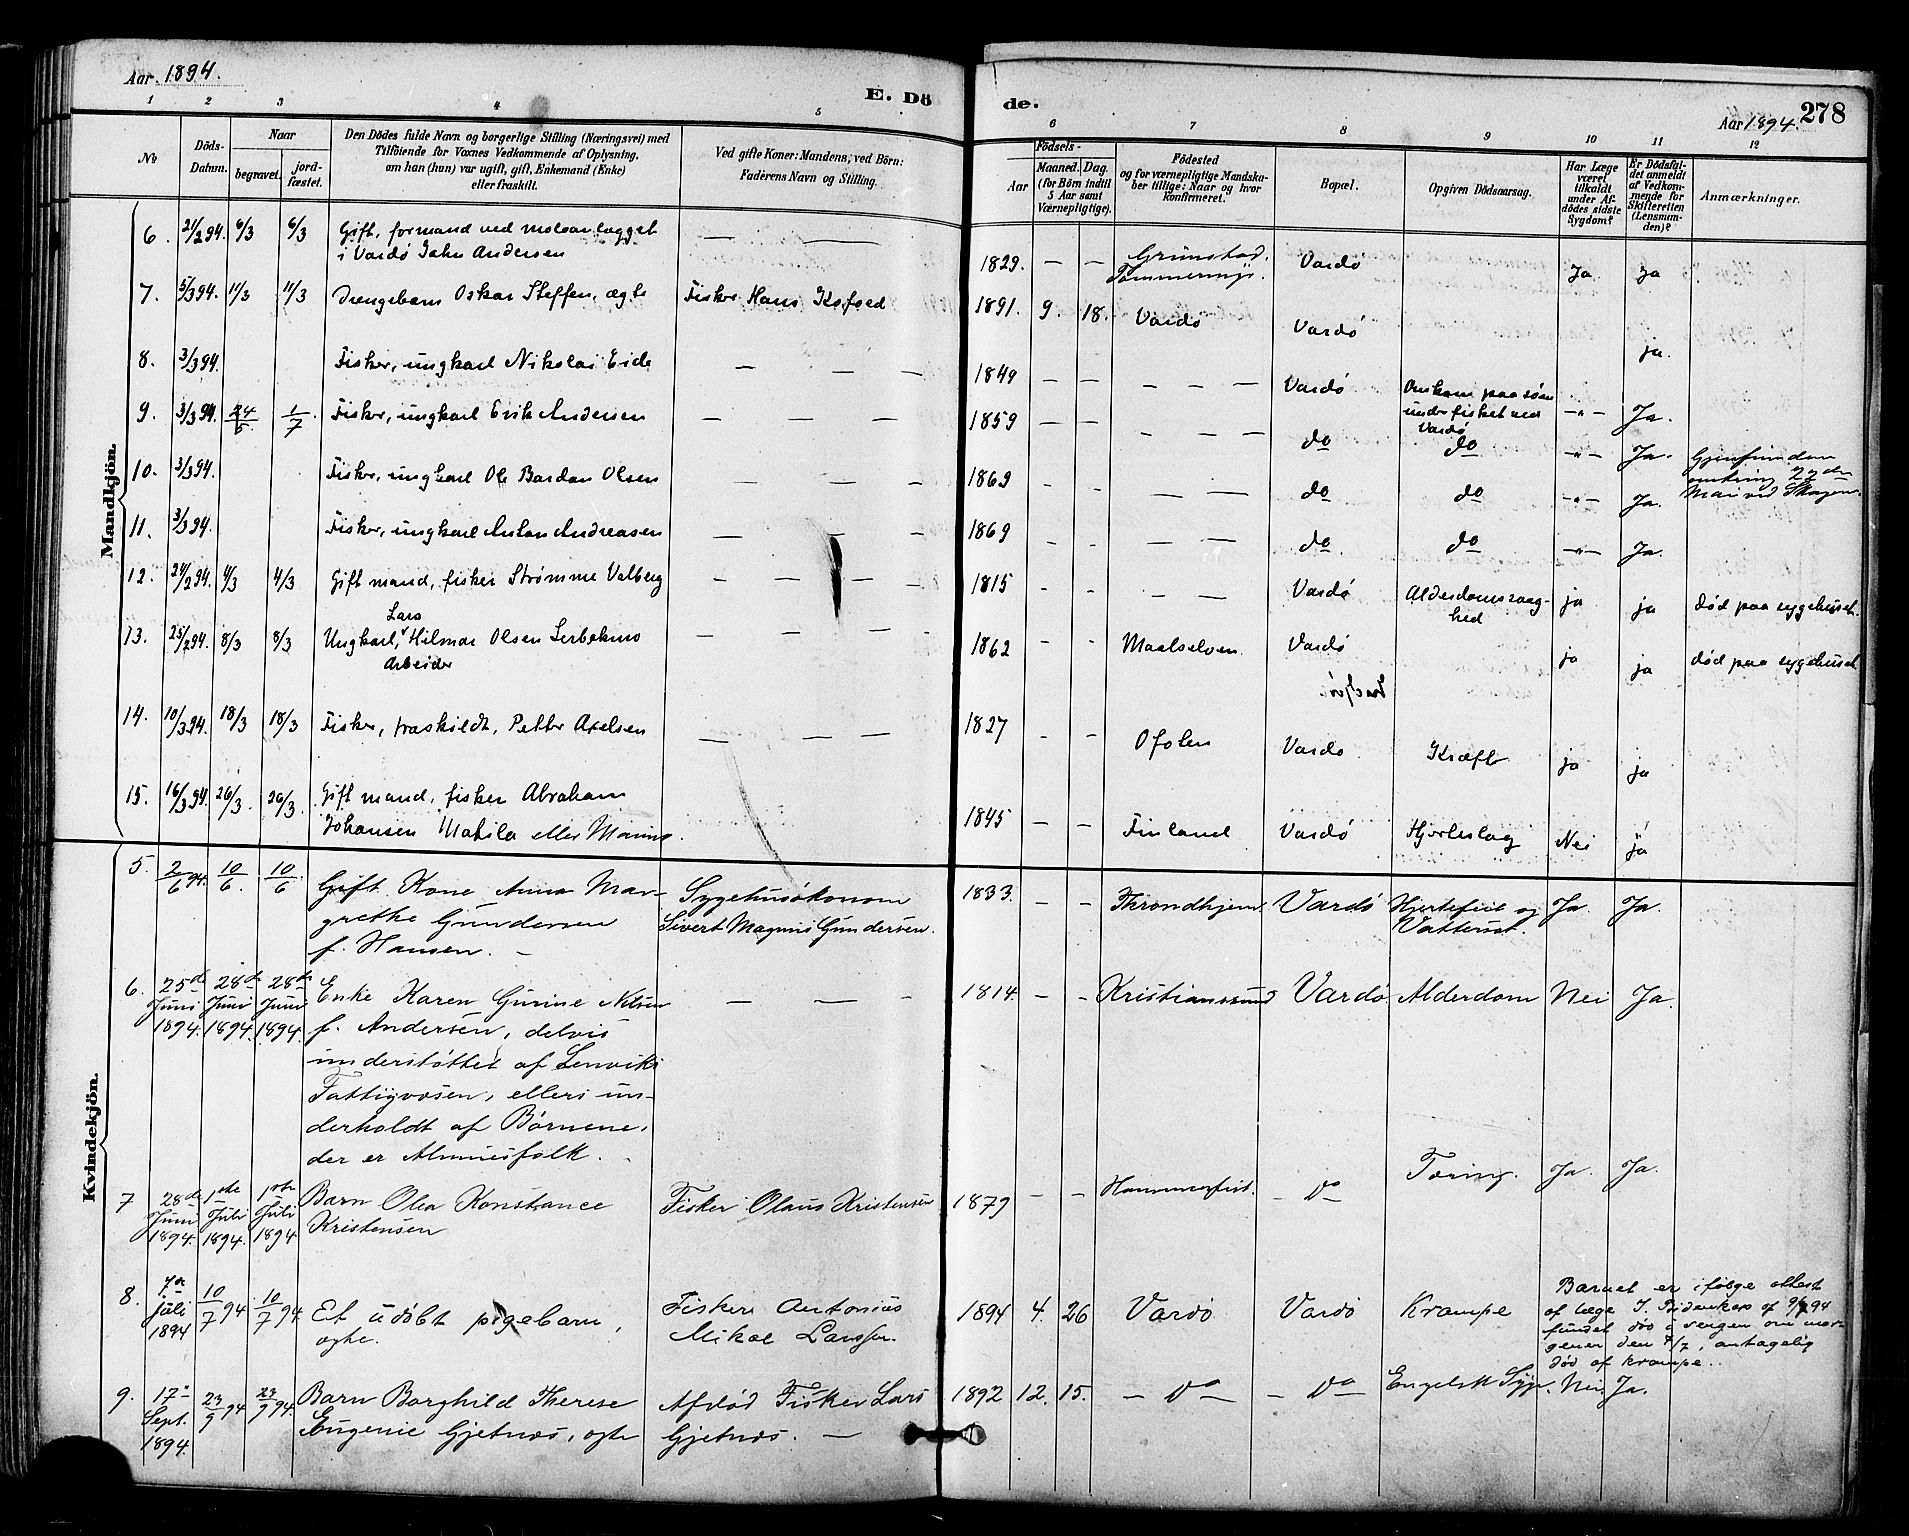 Aar. 1894.
E. Dö
de.
Aar 1894.
278
1 2 3 4 5 6 7 8 9 10 11 12
No
Döds-
Datum.
Naar
begravet.
jord-
fæstet.
Den Dödes fulde Navn og borgerlige Stilling (Næringsvei) med
Tilföiende for Voxnes Vedkommende af Oplysning,
om han (hun) var ugift, gift, Enkemand (Enke)
eller fraskilt.
Ved gifte Koner: Mandens, ved Börn:
Faderens Navn og Stilling.
Födsels-
Aar
Maaned. Dag.
(for Börn indtil
5 Aar samt
Værnepligtige).
Födested
og for værnepligtige Mandska-
ber tillige: Naar og hvor
konfirmeret.
Bopæl.
Opgiven Dödsaarsag.
Har Læge
været
tilkaldt
under Af-
dödes sidste
Sygdom?
Er Dödsfal-
det anmeldt
af Vedkom-
mende for
Skifteretten
(Lensman-
den)?
Anmærkninger.
Mandkjön.
6. 21/2 94. 6/3 6/3 Gift, formand ved moloanlægget
i Vardø John Andersen — —
1829. — — Grimstad. Vardø Ja ja
7. 5/3 94. 11/3 11/3 Drengebarn Oskar Steffen, ægte Fisker Hans Kofoed
1891. 9. 18. Vardø Vardø ja.
8. 3/3 94. Fisker, ungkarl Nikolai Eide — — —
1849 — — — — — Vardø Omkom paa søen
under fisket ved
Vardø -"- Ja.
9. 3/3 94. 24/5 1/7 Fisker, ungkarl Erik Andersen — — —
1859 — — — — — do do -"- Ja. Gjenfunden
omkring 22den
Mai ved Skagen.
10. 3/3 94. Fisker, ungkarl Ole Bardon Olsen — — —
1869 - - — — do do -"- Ja.
11. 3/3 94. Fisker, ungkarl Anton Andreasen — — -
1869 - - — — do do -"- Ja.
12. 24/2 94. 4/3 4/3 Gift mand, fisker Strømme Valberg — — —
1815 - - — — Vardø Alderdomssvag-
hed ja ja død paa sygehuset.
Lars
13. 25/2 94. 8/3 8/3 Ungkarl, Hilmar Olsen
Arbeider
1862 - - Maalselven. Vardø ja ja død paa sygehuset
14. 10/3 94. 18/3 18/3 Fisker, fraskildt, Petter Axelsen — — —
1827 - - Ofoten Vardø Kræft ja ja
15. 16/3 94. 26/3. 26/3. Gift mand, fisker Abraham
Johansen Matila eller Manno.
1845 — — Finland Vardø Hjerteslag Nei ja
Kvindekjön.
5. 2/6 94. 10/6. 10/6. Gift Kone Anna Mar-
grethe Gundersen
f. Hansen. —
Sygehusøkonom
Sivert Magnus Gundersen.
1833. — — Throndhjem Vardø Hjertefeil og
Vattersot. Ja. Ja.
6. 25de
Juni
1894. 28de
Juni
1894. 28de
Juni
1894. Enke Karen Gurine Nilsen
f. Andersen, delvis
understøttet af Lenviks
Fattigvæsen, ellers un-
derholdt af Børnene,
der er Almuesfolk. -
— — -
1814. - - Kristianssund Vardø Alderdom Nei Ja.
7 28de
Juni
1894. 1ste
Juli
1894. 1ste
Juli
1894 Barn Olea Konstance
Kristensen
Fisker Olaus Kristensen
1879 — — Hammerfest. — Do Tæring. Ja. Ja.
8. 7de
juli
1894 10/7 94 10/7 94 Et udøbt pigebarn,
ægte.
Fisker Antonius
Mikal Larssen.
1894 4. 26 Vardø Vardø Krampe
Barnet er ifølge attest
af læge af 9/7 94
fundet død i sengen om mor-
genen den 7/7, antagelig
død af krampe.
9. 17de
Sept.
1894. 23/9 94 23/9 94. Barn Borghild Therese
Eugenie Gjetnæs, ægte
Afdød Fisker Lars
Gjetnæs. —
1892 12. 15. — Do — Do Engelsk Syge. Nei. Ja.